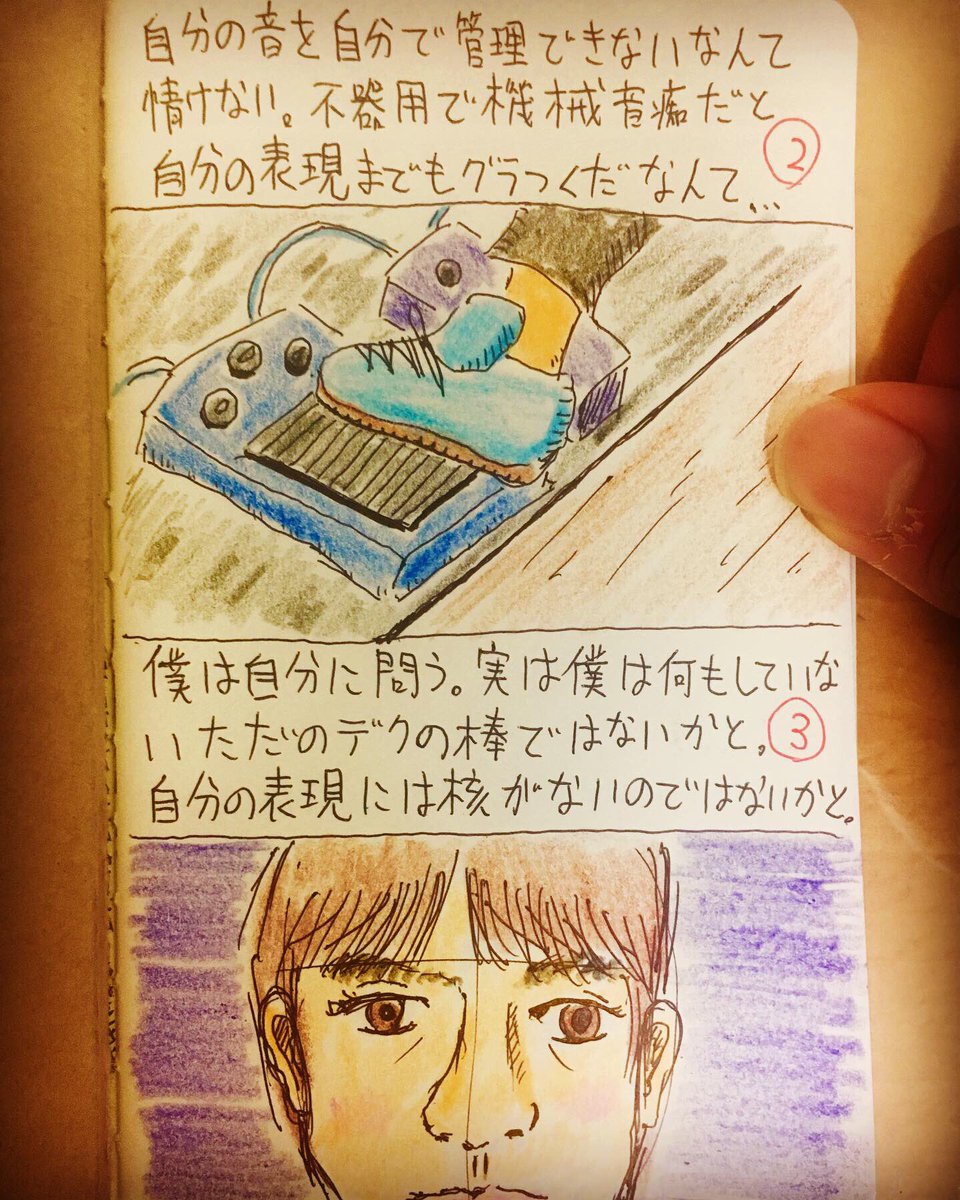 自分の音を自分で管理できないなんて
情けない。不器用で機械音痴だと
自分の表現までもグラつくだなんて...
②
僕は自分に問う。実は僕は何もしていな
いただのデクの棒ではないかと。
③
自分の表現には核がないのではないかと。